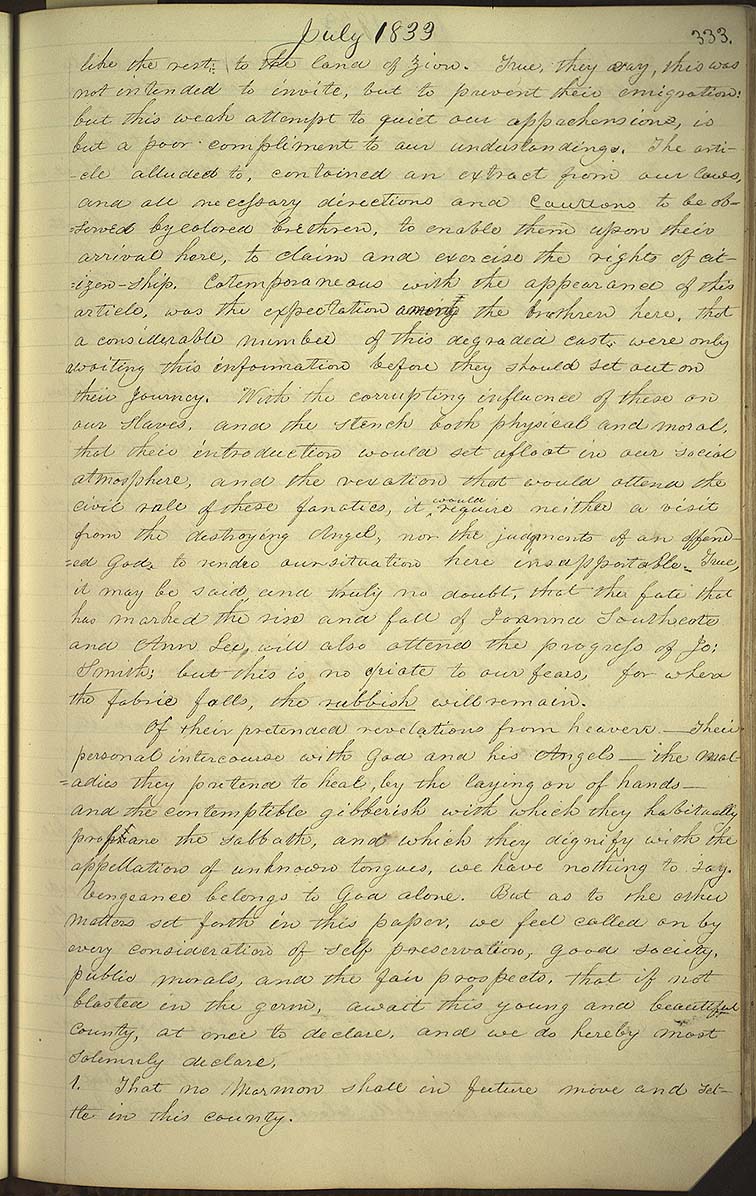 July 1833
333.
like the rest; to the land of Zion. True, they say, this was
not intended to invite, but to prevent their emigration:
but this weak attempt to quiet our apprehensions, is
but a poor compliment to our understandings. The arti-
-cle alluded to, contained an extract from our laws,
and all necessary directions and cautions to be ob-
=served by colored brethren, to enable them upon their
arrival here, to claim and exercise the rights of cit-
=izen-ship. Cotemporaneous with the appearance of this
article, was the expectation among the brethren here, that
a considerable number of this degraded cast, were only
waiting this information before they should set out on
their journey. With the corrupting influence of these on
our slaves, and the stench both physical and moral,
that their introduction would set afloat in our social
atmosphere, and the vexation that would attend the
civil rule of these fanatics, it would require neither a visit
from the destroying Angel, nor the judgments of an offend-
=ed God, to render our situation here insupportable. True,
it may be said, and truly no doubt, that the fate that
has marked the rise and fall of Joanna Southcote
and Ann Lee, will also attend the progress of Jo:
Smith; but this is no opiate to our fears, for when
the fabric falls, the rubbish will remain.
Of their pretended revelations from heaven — Their
personal intercourse with God and his Angels — the mal-
=adies they pretend to heal, by the laying on of hands —
and the contemptible gibberish with which they habitually
prophane the Sabbath, and which they dignify with the
appellation of unknown tongues, we have nothing to say.
Vengeance belongs to God alone. But as to the other
matters set forth in this paper, we feel called on by
every consideration of self preservation, good society,
public morals, and the fair prospects, that if not
blasted in the germ, await this young and beautiful
county, at once to declare, and we do hereby most
solemnly declare,
1. That no Mormon shall in future move and set-
tle in this county.